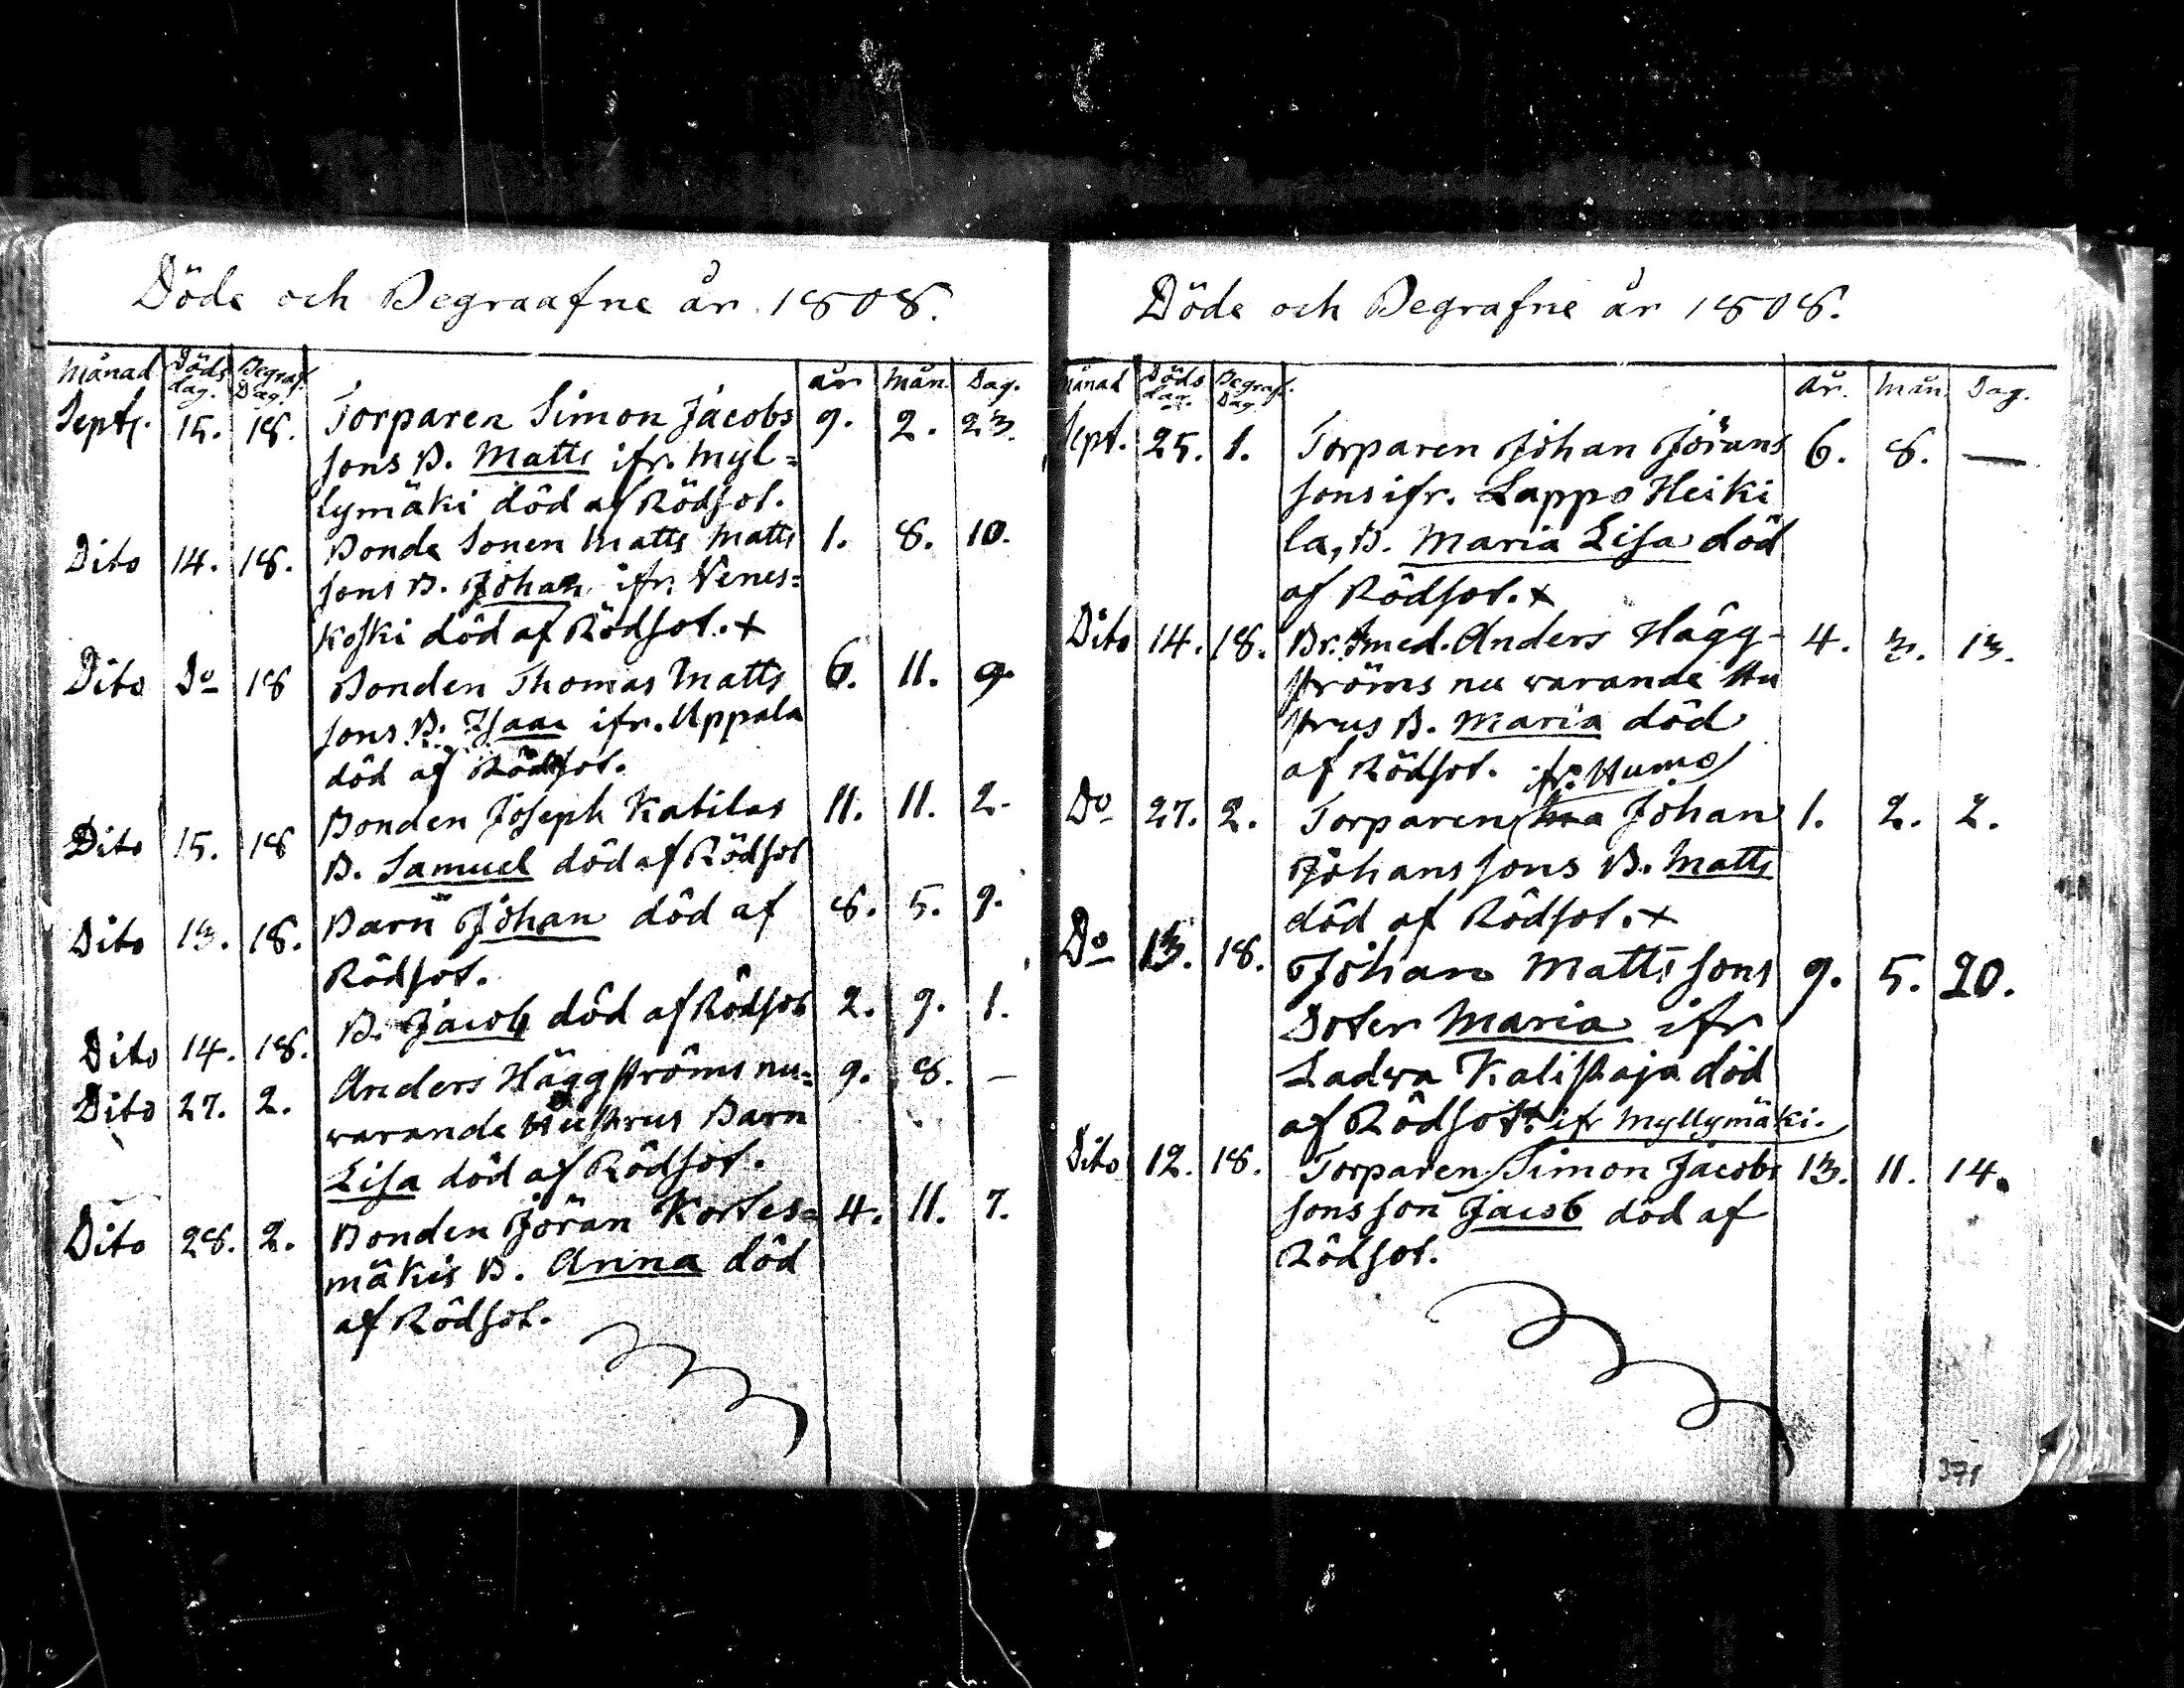 Döde och Begraafne år 1808.
Månad Döds dag. Begraf. Dag. år Mån. Dag.
Sept. 15. 18. Torparen Simon Jacobs 9. 2. 23.
sons B. Matts ifr. Myl=
lymäki död af Rödsot.
Dito 14. 18. Bonde Sonen Matts Matts 1. 8. 10.
sons B. Johan ifr. Venes=
koski död af Rödsot. x
Dito Do 18 Bonden Thomas Matts 6. 11. 9.
sons B. Isaac ifr. Uppala
död af Rödsot.
Dito 15. 18 Bonden Joseph Katilas 11. 11. 2.
B. Samuel död af Rödsot
Dito 13. 18. Barn Johan död af 8. 5. 9.
Rödsot.
Dito 14. 18. B. Jacob död af Rödsot 2. 9. 1.
Dito 27. 2. Anders Häggströms nu= 9. 8. —
varande Hustrus Barn
Lisa död af Rödsot.
Dito 28. 2. Bonden Jöran Kortes= 4. 11. 7.
mäkis B. Anna död
af Rödsot.
Döde och Begrafne år 1808.
Månad Döds dag. Begraf. Dag År. Mån Dag.
Sept. 25. 1. Torparen Johan Jörans 6. 8. —
sons ifr. Lappo Heiki
la, B. Maria Lisa död
af Rödsot. x
Dito 14. 18. Br. Smed. Anders Hägg- 4. 3. 13.
ströms nu varande Hu
strus B. Maria död
af Rödsot. ifr. Humo
Do 27. 2. Torparen Johan 1. 2. 2.
Johans sons B. Matts
död af Rödsot. x
Do 13. 18. Johan Matts sons 9. 5. 20.
Doter Maria ifr
Ladva Kalistaja död
af Rödsot. ifr Myllymäki.
Dito 12. 18. Torparen Simon Jacobs 13. 11. 14.
sons son Jacob död af
Rödsot.